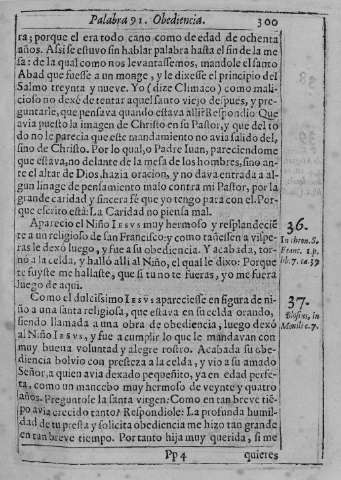 Palabra 91. Obediencia. 300
ra; porque el era todo cano como de edad de ochenta
años. Assi se estuvo sin hablar palabra hasta el fin de la me
sa: de la qual como nos levantassemos, mandole el santo
Abad que fuesse a un monge, y le dixesse el principio del
Salmo treynta y nueve. Yo (dize Climaco) como mali-
cioso no dexé de tentar aquel santo viejo despues, y pre-
guntarle, que pensava quando estava alli? Respondio Que
avia puesto la imagen de Christo en su Pastor, y que del to
do no le parecia que este mandamiento no avia salido del,
sino de Christo. Por lo qual, o Padre Iuan, pareciendome
que estava, no delante de la mesa de los hombres, sino an-
te el altar de Dios, hazia oracion, y no dava entrada a al-
gun linage de pensamiento malo contra mi Pastor, por la
grande caridad y sincera fé que yo tengo para con el. Por-
que escrito está: La Caridad no piensa mal.
Aparecio el Niño IESVS muy hermoso y resplandeciẽ
te a un religioso de san Francisco: y como tañessen a vispe-
ras le dexó luego, y fue a su obediencia. Y acabada, tor-
nó a la celda, y halló alli al Niño, el qual le dixo: Porque
te fuyste me hallaste, que si tu no te fueras, yo me fuera
luego de aqui.
36.
In chron. S.
Franc. 1. p.
lib. 7. ca. 37
Como el dulcissimo IESVS apareciesse en figura de ni-
ño a una santa religiosa, que estava en su celda orando,
siendo llamada a una obra de obediencia, luego dexó
al Niño IESVS, y fue a cumplir lo que le mandavan con
muy buena voluntad y alegre rostro. Acabada su obe-
diencia bolvio con presteza a la celda, y vio a su amado
Señor, a quien avia dexado pequeñito, ya en edad perfe-
ta, como un mancebo muy hermoso de veynte y quatro
años. Preguntole la santa virgen: Como en tan breve tiẽ-
po avia crecido tanto? Respondiole: La profunda humil-
dad de tu presta y solicita obediencia me hizo tan grande
en tan breve tiempo. Por tanto hija muy querida, si me
37.
Blosius, in
Monili c. 7.
Pp 4 quieres